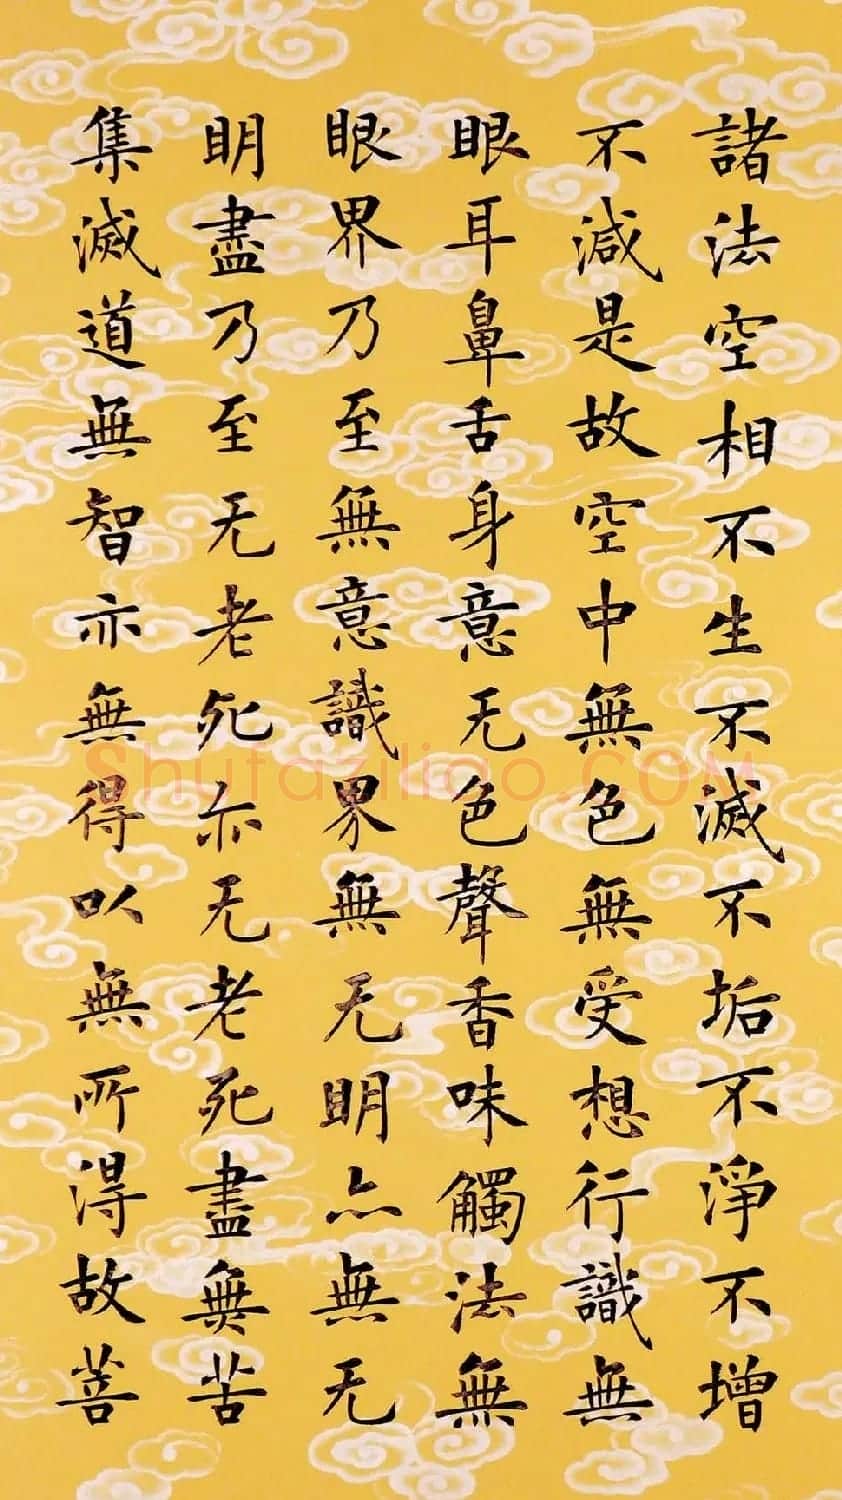 諸法空相不生不滅不垢不淨不增
不減是故空中無色無受想行識無
眼耳鼻舌身意无色聲香味觸法無
眼界乃至無意識界無无明亦無无
明盡乃至无老死亦无老死盡無苦
集滅道無智亦無得以無所得故菩
Shufaziliao.COM